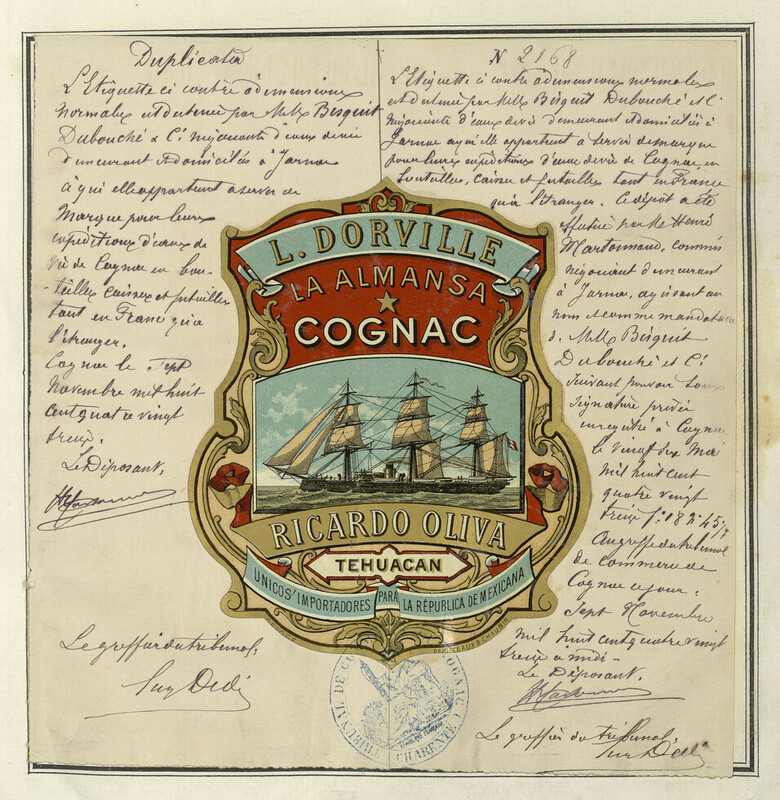 Duplicata
L'Etiquette ci contre à dimensions
normales est detenue par MM. Bisquit
Dubouché & Cie Négociants d'eaux de vie
demeurant & domiciliés à Jarnac
à qui elle appartient a servir de
Marque pour leurs
expéditions d'eaux de
vie de Cognac en bou-
-teilles caisses et futailles
tant en France qu'a
l'étranger.
Cognac le Sept
Novembre mil huit
cent quatre vingt
treize.
Le Déposant,
Le greffier du tribunal:
N 2168
L'Etiquette ci contre à dimensions normales
est detenue par MM. Bisquit Dubouché et Cie
Négociants d'eaux de vie demeurant & domiciliés à
Jarnac a qui elle appartient a servir de marque
pour leurs expéditions d'eaux de vie de Cognac en
bouteilles, caisses et futailles tant en France
qu'à l'étranger. Ce dépôt a été
effectué par Mr Henri
commis
négociant demeurant
à Jarnac, agissant au
nom et comme mandataire
de MM. Bisquit
Dubouché et Cie
suivant pouvoir sous
signature privée
enregistré à Cognac
le vingt six Mai
mil huit cent
quatre vingt
treize
Au greffe du tribunal
de commerce de
Cognac ce jour
Sept Novembre
mil huit cent quatre vingt
treize à midi -
Le Déposant.
Le greffier du tribunal:
L. DORVILLE
LA ALMANSA
COGNAC
RICARDO OLIVA
TEHUACAN
UNICOS IMPORTADORES PARA LA RÉPUBLICA DE MEXICANA
TRIBUNAL DE COGNAC
CHARENTE